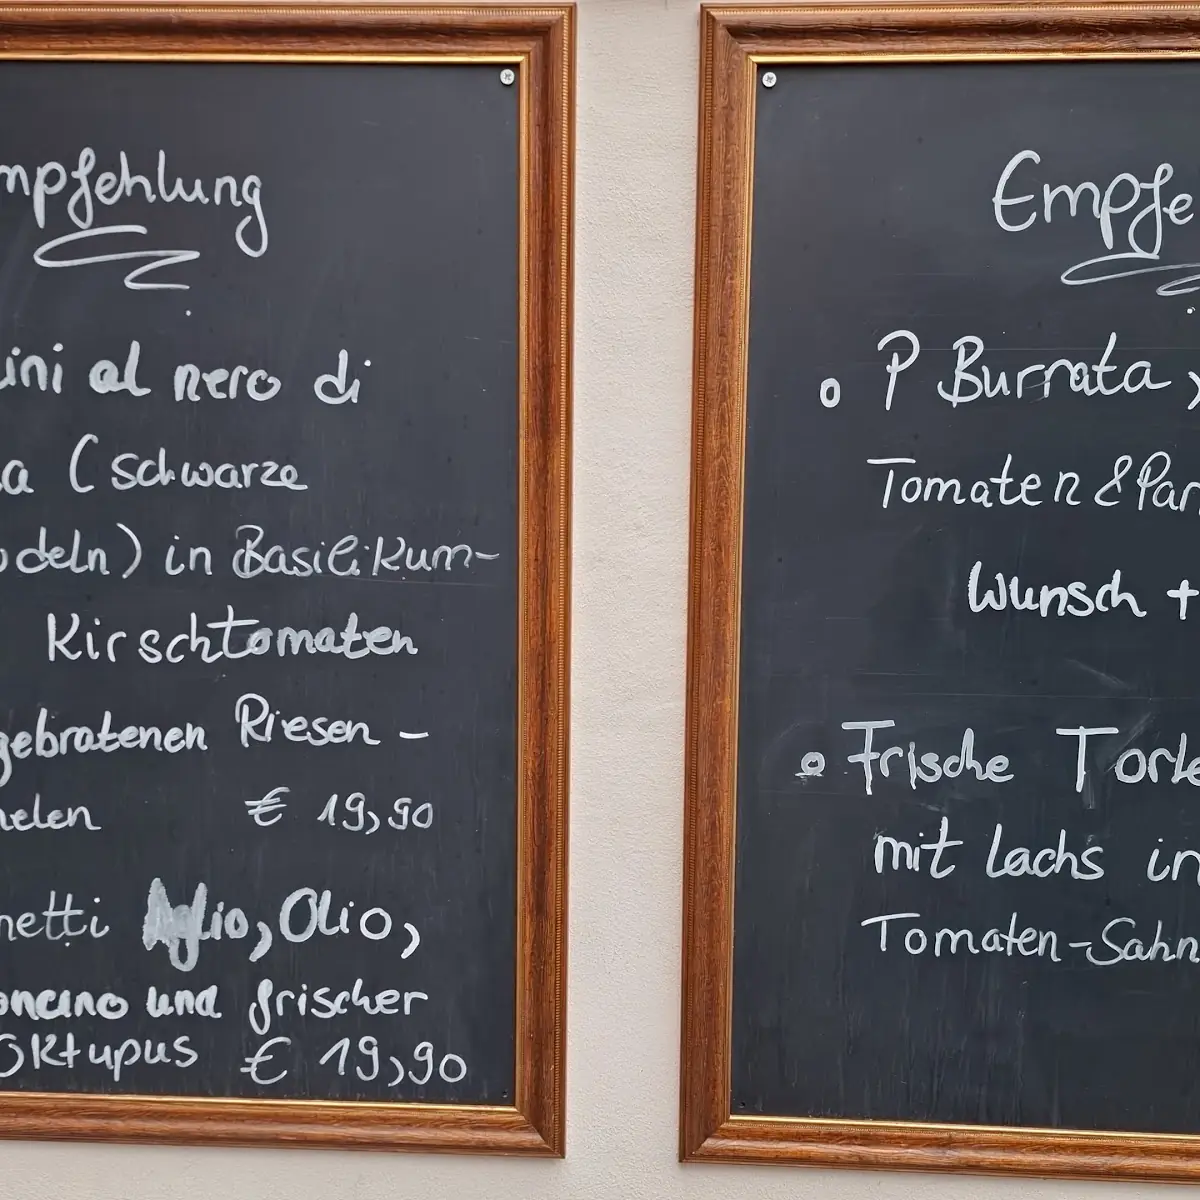 mpfehlung
ini al nero di
a (schwarze
odeln) in Basilikum-
Kirschtomaten
gebratenen Riesen-
nelen € 19,90
netti Aglio, Olio,
oncino und frischer
Oktupus € 19,90
Empfe
o P Burrata,
Tomaten & Par
Wunsch +
o Frische Torte
mit Lachs in
Tomaten-Sahn